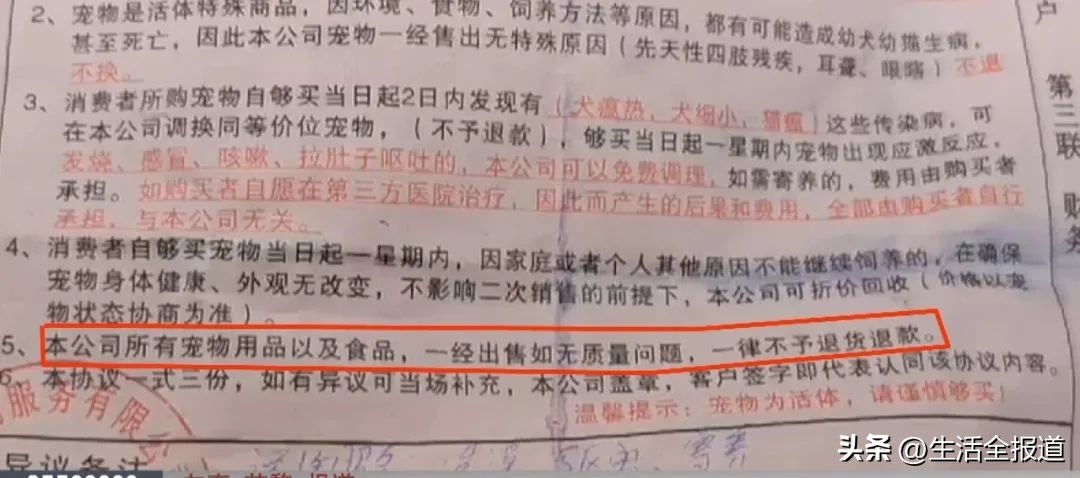 2、宠物是活体特殊商品，因环境、食物、饲养方法等原因，都有可能造成幼犬幼猫生病，
甚至死亡，因此本公司宠物一经售出无特殊原因（先天性四肢残疾，耳聋、眼瞎）不退
不换。
3、消费者所购宠物自够买当日起2日内发现有（犬瘟热，犬细小，猫瘟）这些传染病，可
在本公司调换同等价位宠物，（不予退款），够买当日起一星期内宠物出现应激反应，
发烧、感冒、咳嗽、拉肚子呕吐的，本公司可以免费调理，如需寄养的，费用由购买者
承担。如购买者自愿在第三方医院治疗，因此而产生的后果和费用，全部由购买者自行
承担，与本公司无关。
4、消费者自够买宠物当日起一星期内，因家庭或者个人其他原因不能继续饲养的，在确保
宠物身体健康、外观无改变，不影响二次销售的前提下，本公司可折价回收（价格以宠
物状态协商为准）。
5、本公司所有宠物用品以及食品，一经出售如无质量问题，一律不予退货退款。
6、本协议一式三份，如有异议可当场补充，本公司盖章，客户签字即代表认同该协议内容。
温馨提示：宠物为活体，请谨慎够买）
服务有限公
异议备注
户
第三联
财务
头条@生活全报道